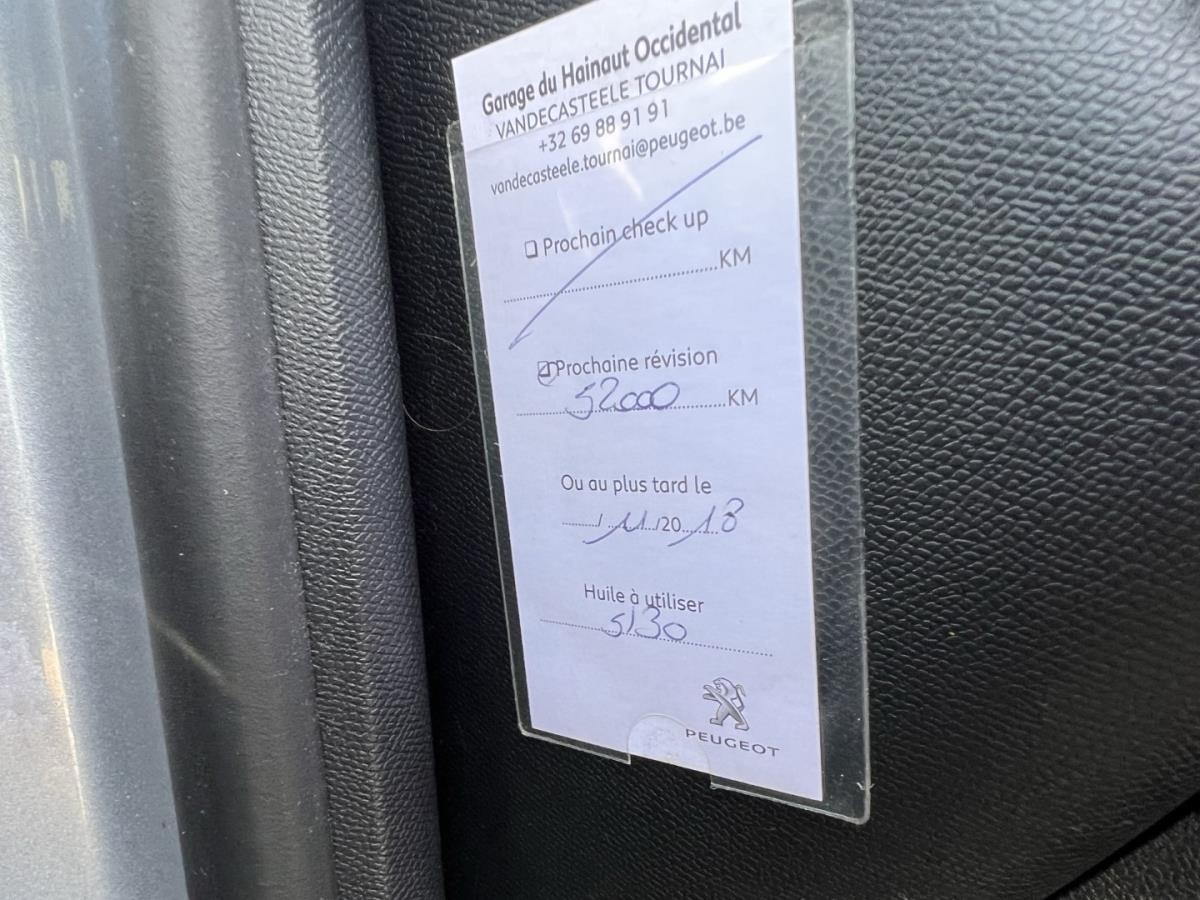 Garage du Hainaut Occidental
VANDECASTEELE TOURNAI
+32 69 88 91 91
vandecasteele.tournai@peugeot.be
❑ Prochain check up
..............................KM
☑ Prochaine révision
52000 KM
Ou au plus tard le
......./ 11 /20 18
Huile à utiliser
5/30
PEUGEOT